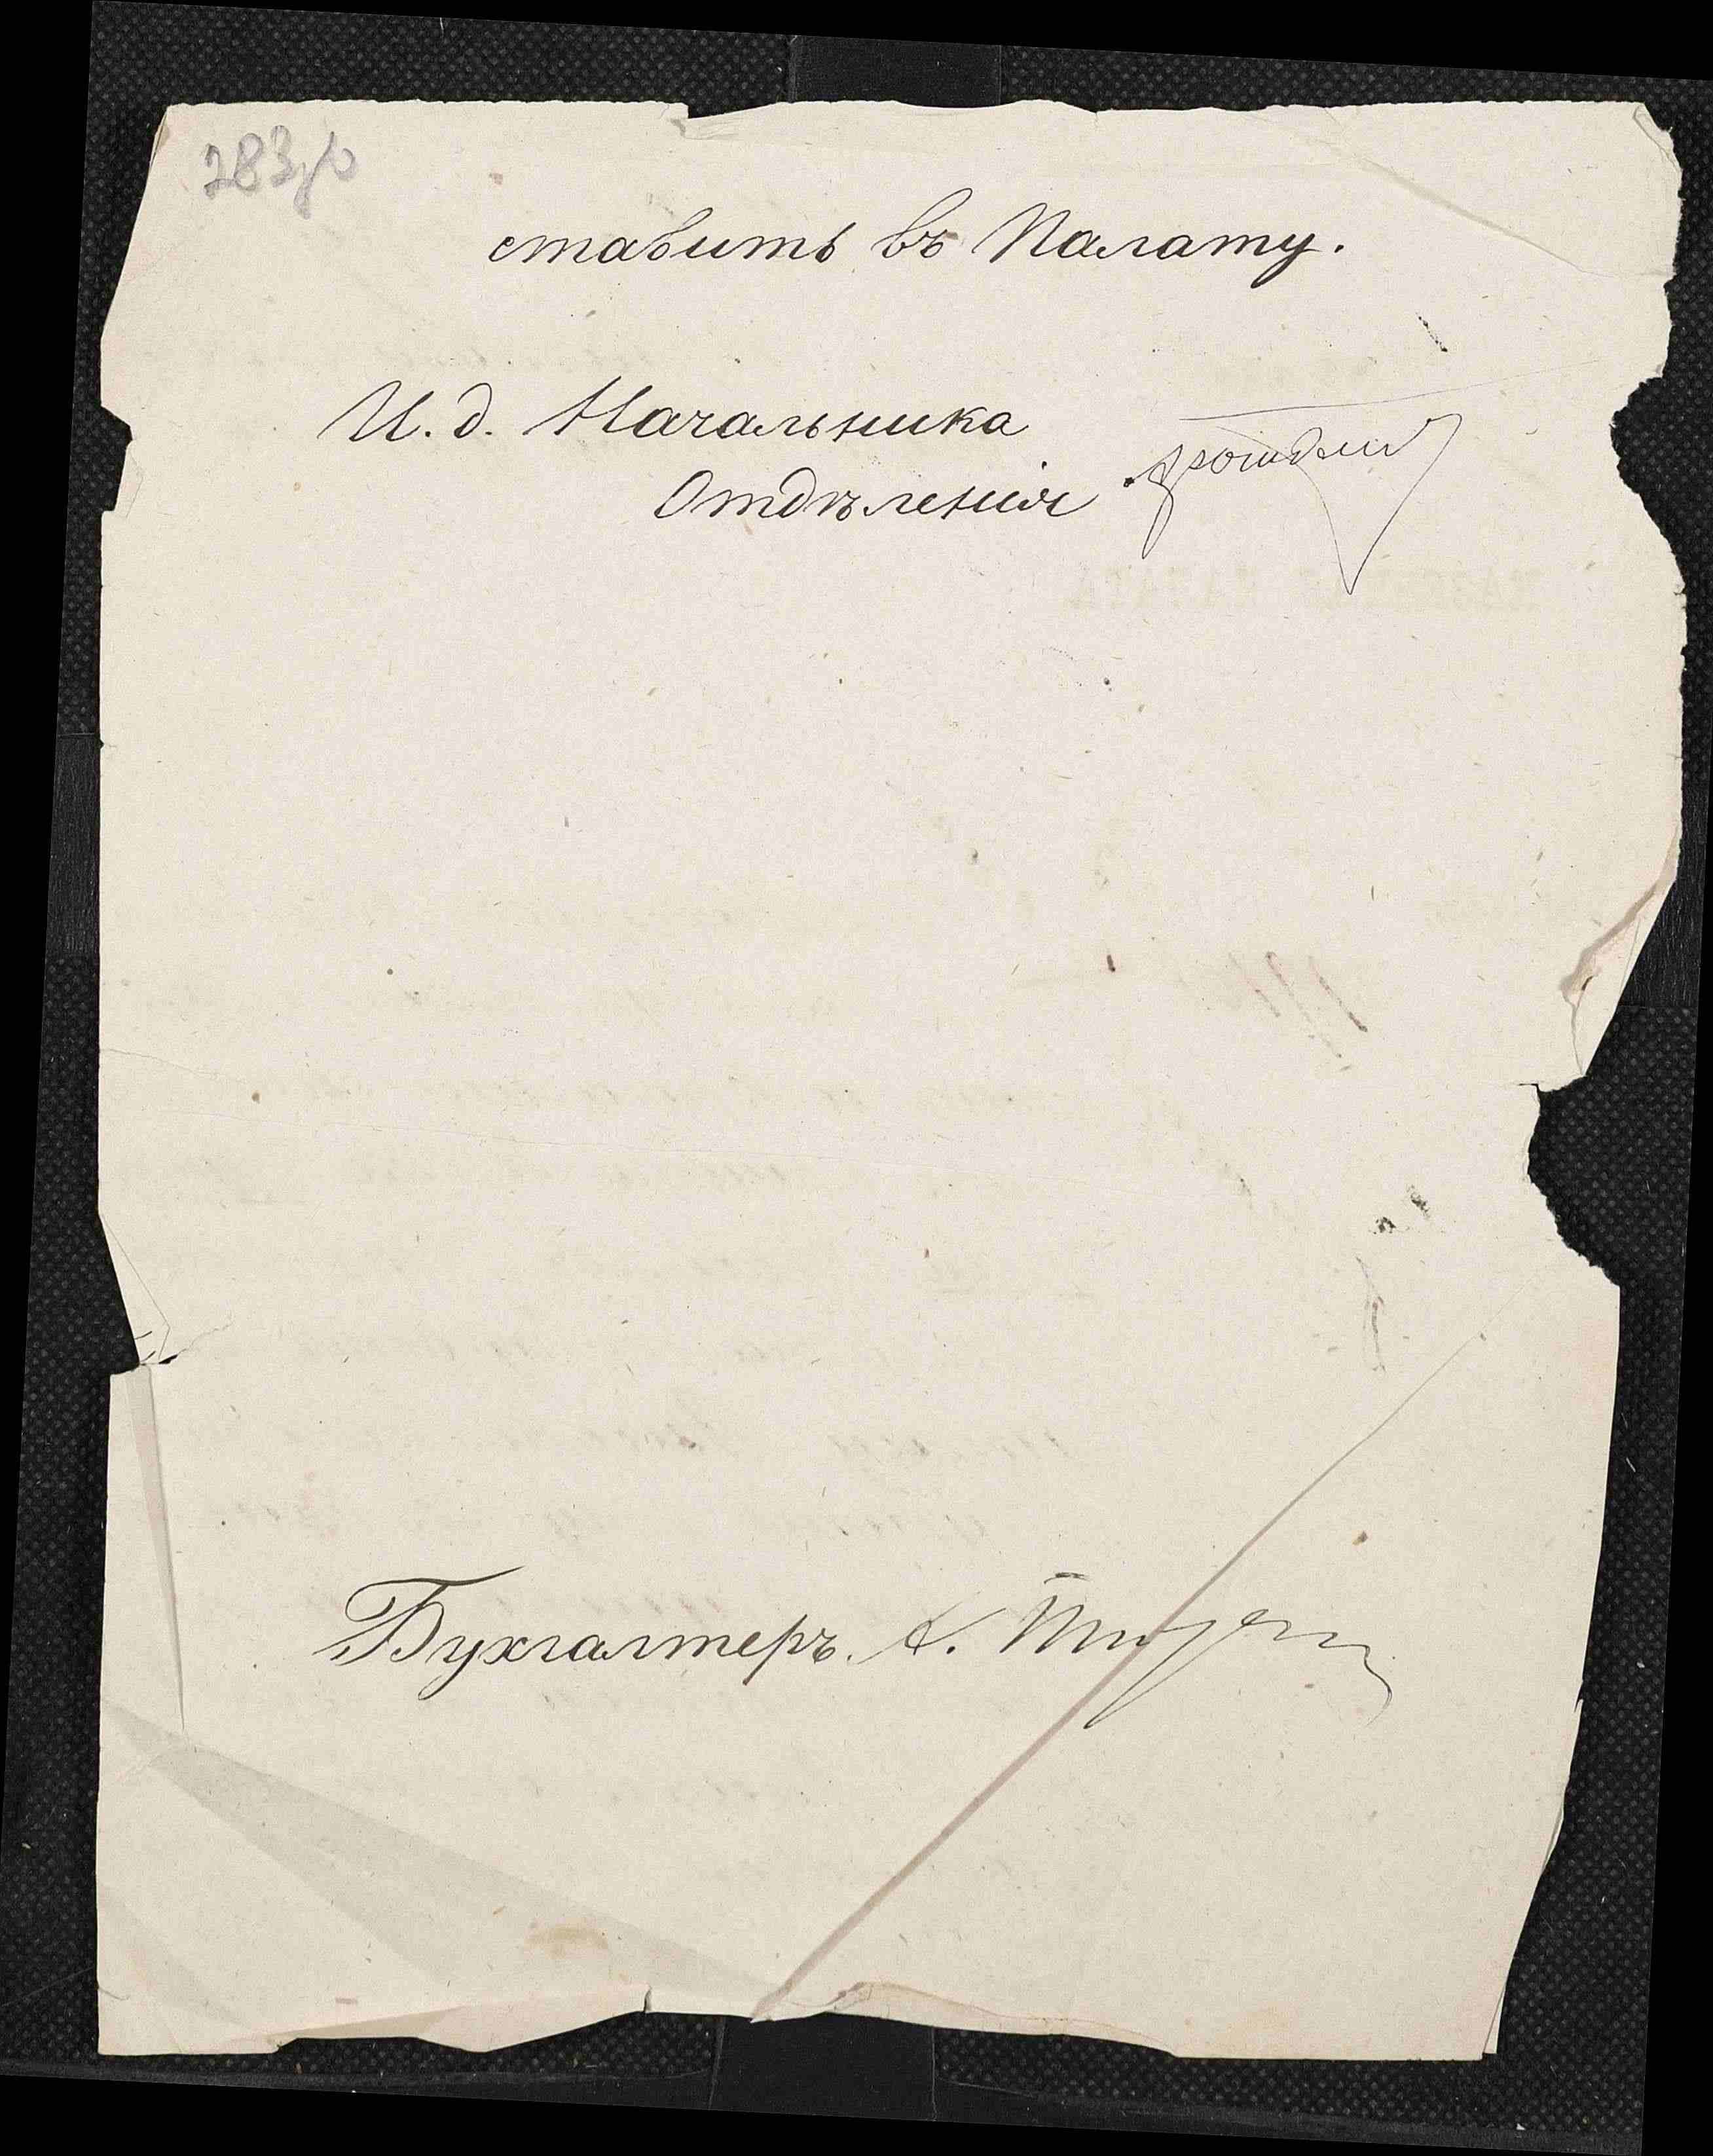 283об
ставить въ Палату.
И. д. Начальника
Отдѣленія
Бухгалтеръ. А.